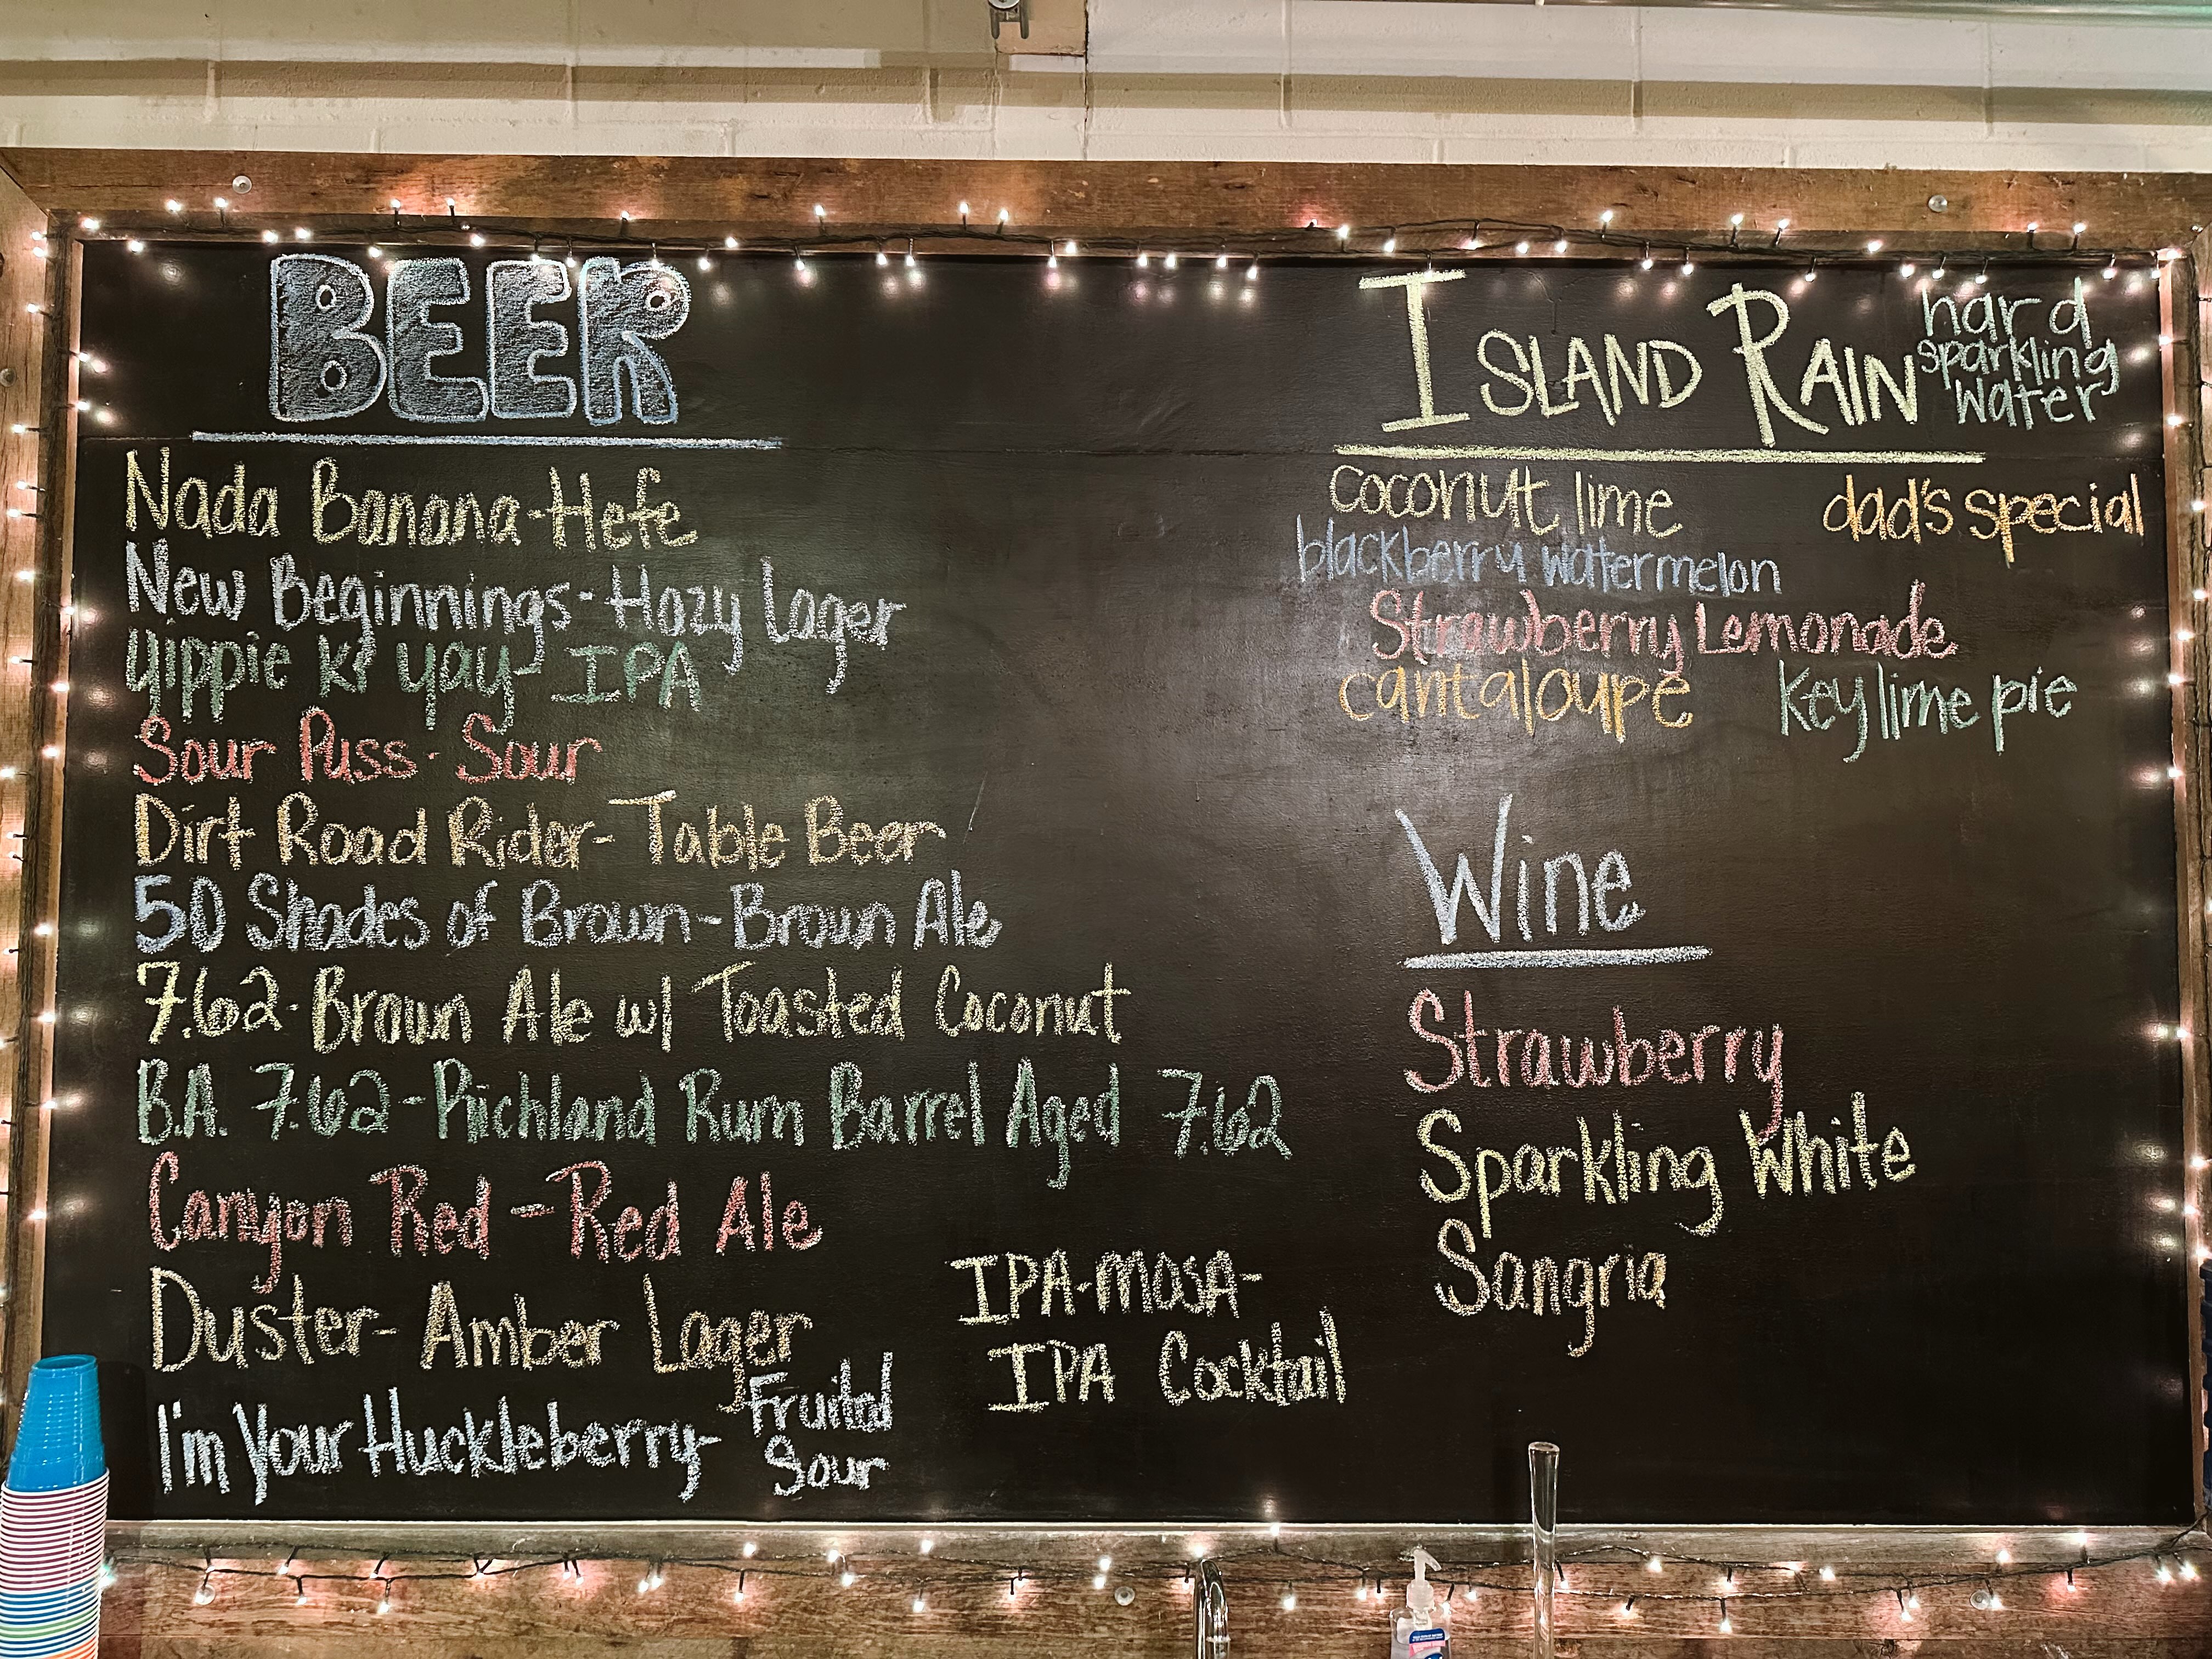 BEER
Nada Banana-Hefe
New Beginnings-Hazy Lager
Yippie Ki Yay-IPA
Sour Puss-Sour
Dirt Road Rider-Table Beer
50 Shades of Brown-Brown Ale
7.62-Brown Ale w/ Toasted Coconut
B.A. 7.62-Richland Rum Barrel Aged 7.62
Canyon Red-Red Ale
Duster-Amber Lager
I'm Your Huckleberry-Fruited
Sour
IPA-mosa-
IPA Cocktail
ISLAND RAIN
hard
sparkling
water
coconut lime
dad's special
blackberry watermelon
Strawberry Lemonade
cantaloupe
Key lime pie
Wine
Strawberry
Sparkling White
Sangria